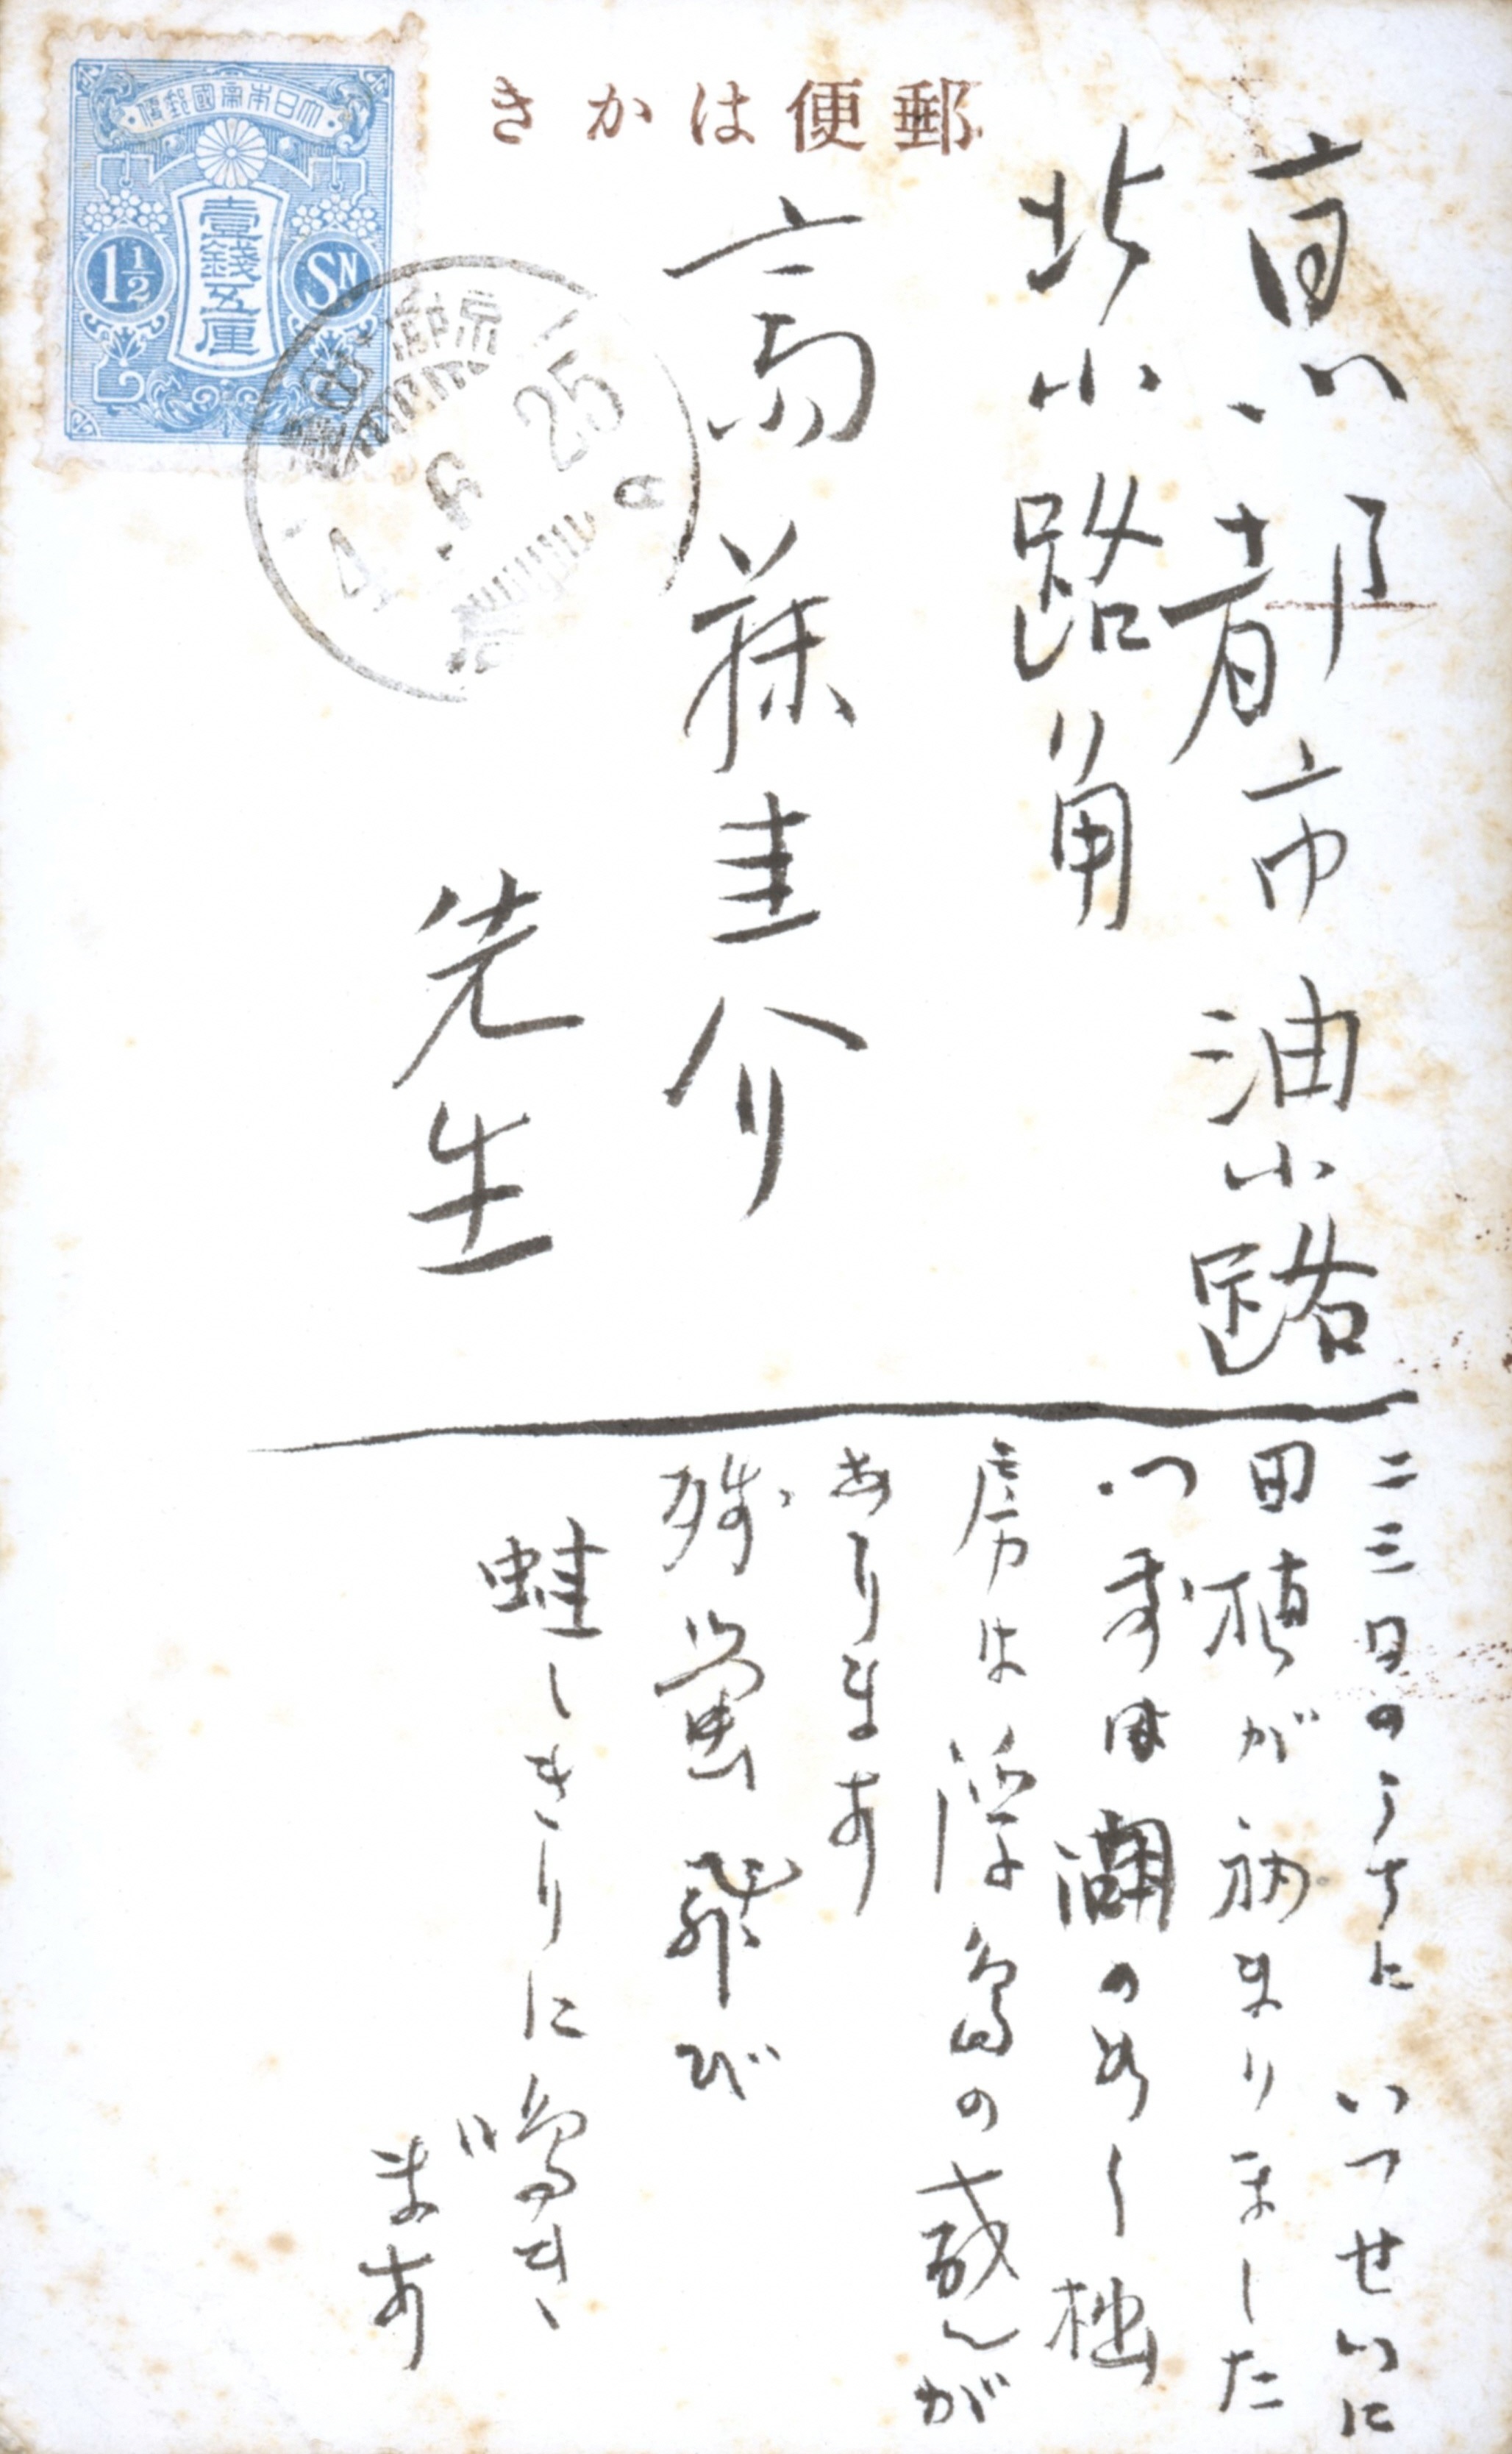 郵便はかき
大日本帝國郵便
壹錢五厘
1½
SN
京都
4.6.25
京都市油小路
北小路角
斎藤圭介
先生
二三日のうちにいつせいに
田植が納まりました
つまは湖の如し
房は浮島の感じが
あります
残螢飛び
蛙しきりに鳴き
ます